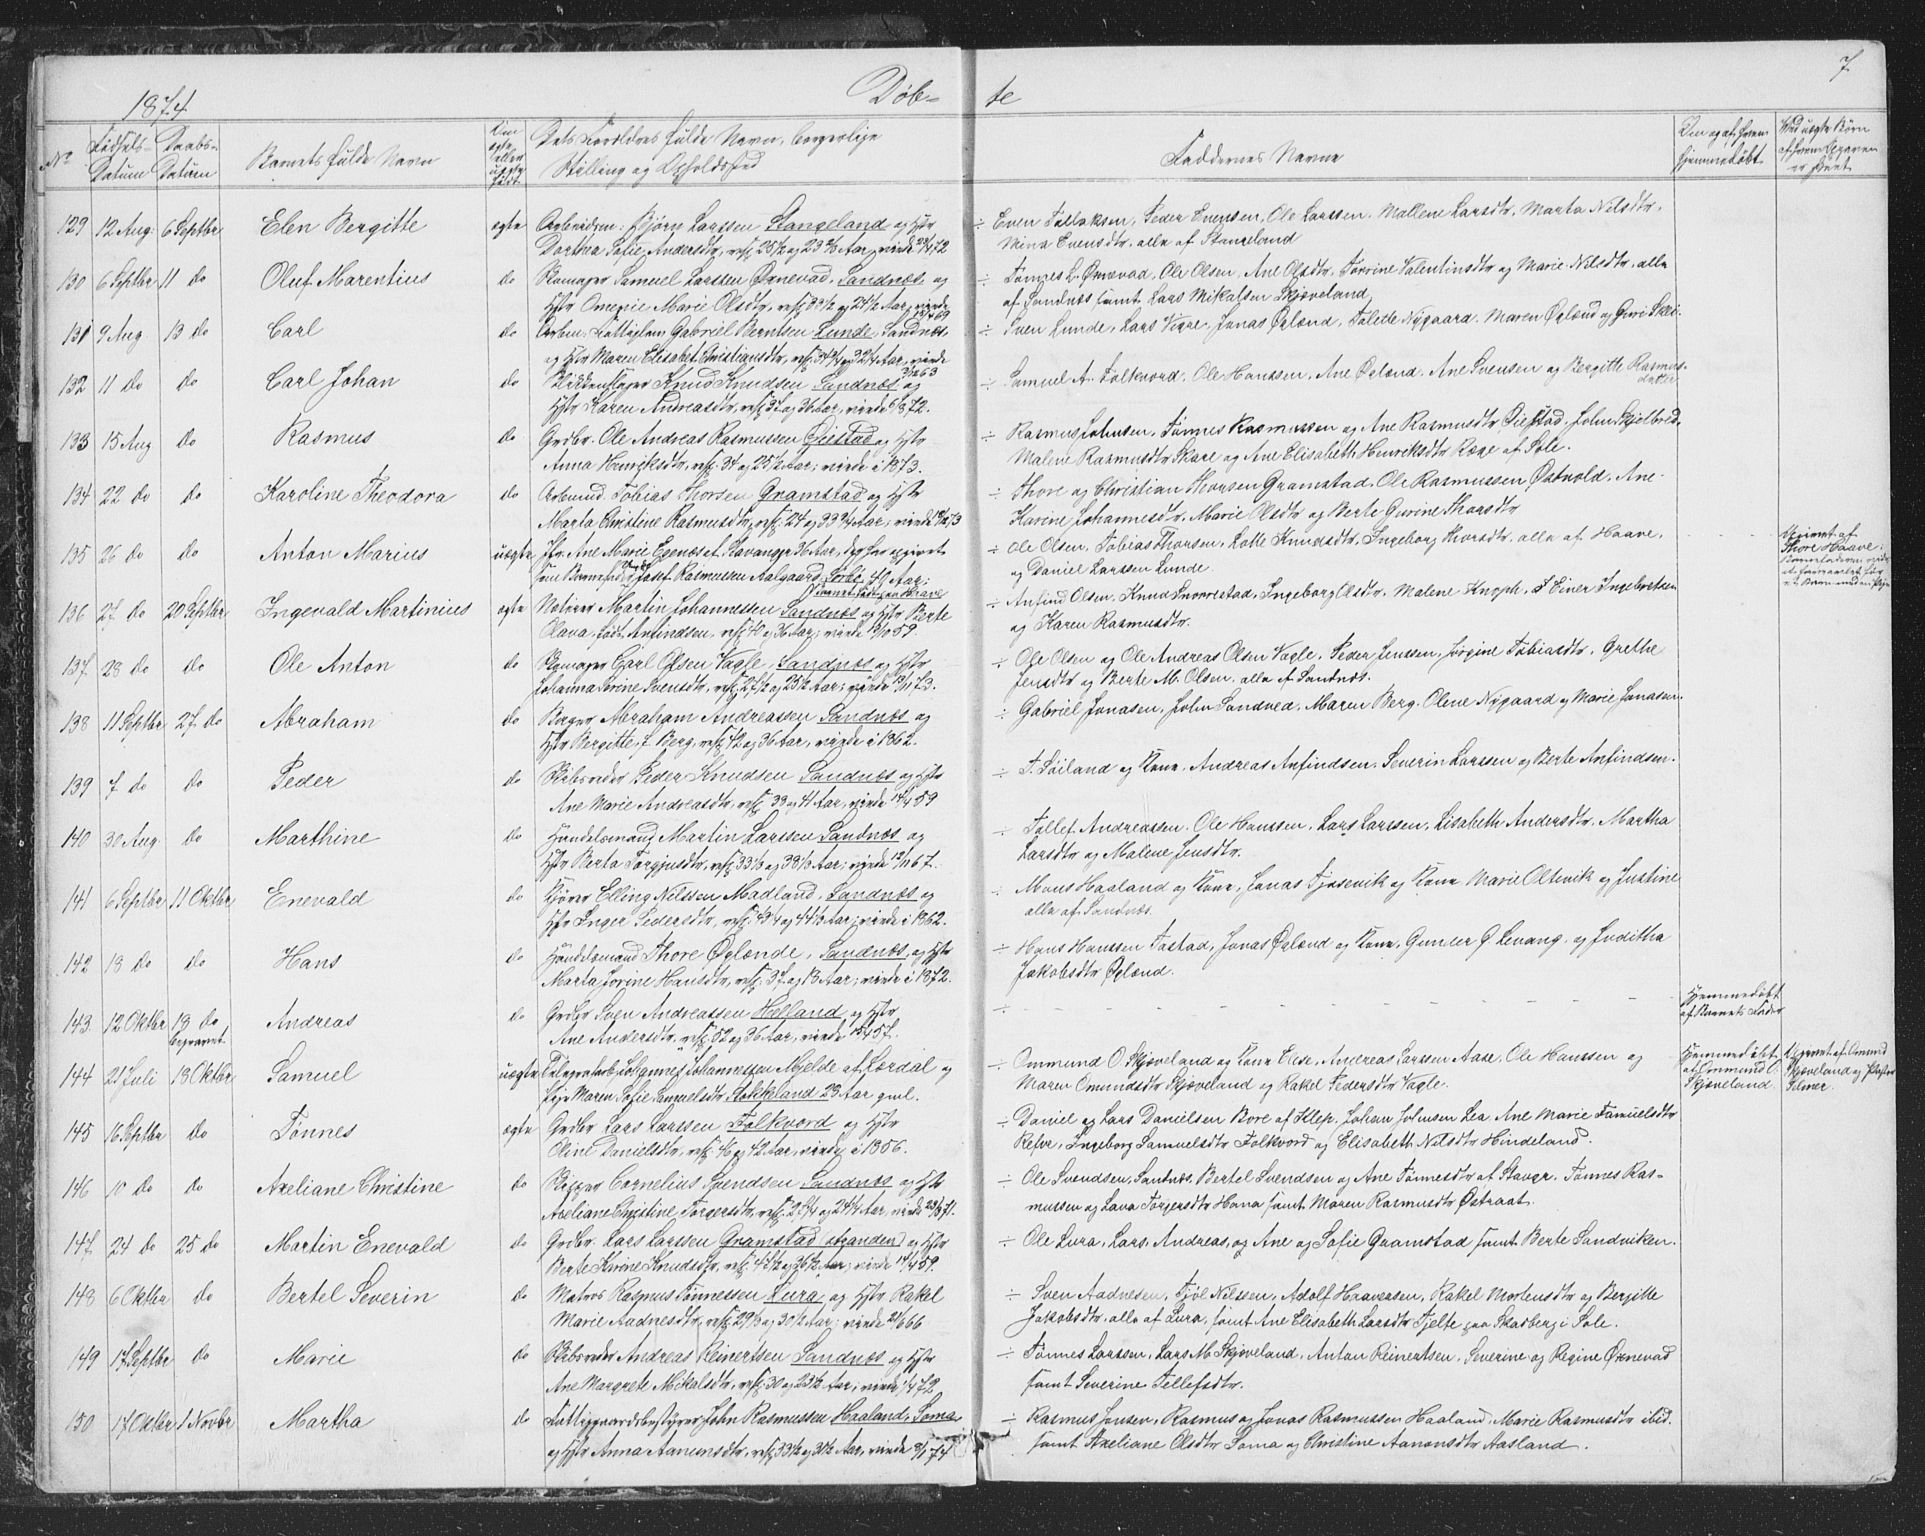 1874
Døb-
te
7
No
Fødsels-
Datum
Daabs-
Datum
Barnets fulde Navn
Om ægte eller uægte født
Dets Forældres fulde Navn, borgerlige
Stilling og Opholdssted
Faddernes Navne
Om og af hvem
hjemmedøbt
Ved uægte Børn
af hvem Opgaven
er skeet
129 12 Aug. 6 Septbr Elen Bergitte ægte Arbeidsm. Bjørn Larssen Stangeland og Hstr
Dorthea Sofie Andersdtr, resp. 25½ og 23 Aar, viede 72
÷ Even Tollaksen, Peder Evensen, Ole Larssen, Mallene Larsdtr, Marta Nilsdtr,
Mina Evensdtr, alle af Stangeland
130 6 Septbr 11 do Oluf Marentius do Skomager Samuel Larssen Ørnevad, Sandnæs og
Hstr Marie Olsdtr, resp. og 24½ Aar, viede 69
÷ Tønnes L. Ørnevad, Ole Olsen, Ane Olsdtr, Torrine Valentinsdtr og Marie Nilsdtr, alle
af Sandnæs samt Lars Mikalsen Skjæveland
131 9 Aug 13 do Carl do Arbm. Gabriel Berntsen Lunde, Sandnæs
og Hstr Maren Elisabet Christiansdtr, resp. 34¾ og 32¼ Aar, viede 63
÷ Sven Lunde, Lars Vagle, Jonas Øglænd, Talette Nygaard, Maren Øglænd og Guri Skei.
132 11 do do Carl Johan do Knud Knudsen Sandnæs og
Hstr Karen Andreasdtr, resp. 37 og 36 Aar, viede 72.
÷ Samuel A. Folkvord, Ole Hanssen, Ane Øglænd, Ane Svensen og Bergitte Rasmus-
datter
133 15 Aug do Rasmus do Grdbr. Ole Andreas Rasmussen og Hstr
Anna Henriksdtr, resp. 34 og 25½ Aar; viede i 1873.
÷ Rasmus Johnsen, Tønnes Rasmussen og Ane Rasmusdtr, John Skjelbred,
Malene Rasmusdtr Skare og Ane Elisabeth Henriksdtr Ræge af Sole.
134 22 do do Karoline Theodora do Arbmd. Tobias Thorsen Gramstad og Hstr
Marta Christine Rasmusdtr, resp. 24 og 33¾ Aar; viede 73
÷ Thore og Christian Thorsen Gramstad, Ole Rasmussen Østvold, Ane
Karine Johannesdtr, Marie Olsdtr og Berte Gurine Thorsdtr
135 26 do do Anton Marius uægte Ane Marie Egenæs af Stavanger 36 Aar, der har opgivet
som Barnefader Josef Rasmussen Aalgaard 49 Aar;
÷ Ole Olsen, Tobias Thorsen, Lotte Knudsdtr, Ingeborg Thorsdtr, alle af Haave,
og Daniel Larssen Lunde.
Opgivet af
Thore Haave;
136 27 do 20 Septbr Ingevald Martinius ægte Martin Johannessen Sandnæs og Hstr Berte
Olava, født Anfindsen, resp. 40 og 36 Aar; viede 59.
÷ Anfind Olsen, Knud Snorrestad, Ingeborg Olsdtr, Malene Knoph, Einer Ingebretsen
og Karen Rasmusdtr.
137 28 do do Ole Anton do Skomager Carl Olsen Vagle, Sandnæs og Hstr
Johanna Serine Svensdtr, resp. 27½ og 25½ Aar; viede 73.
÷ Ole Olsen og Ole Andreas Olsen Vagle, Peder Jenssen, Jørgine Tobiasdtr, Grethe
Jensdtr og Berte M. Olsen, alle af Sandnæs.
138 11 Septbr 27 do Abraham do Abraham Andreassen Sandnæs og
Hstr Bergitte, f. Berg, resp. 42 og 36 Aar, viede i 1862.
÷ Gabriel Jonasen, John Sandved, Maren Berg, Olene Nygaard og Marie Jonasen.
139 7 do do Peder do Skibsreder Peder Knudsen Sandnæs og Hstr
Ane Marie Andreasdtr, resp. 39 og 41 Aar, viede 59
÷ T. Søiland og Kone, Andreas Anfindsen, Severin Larssen og Berte Anfindsen.
140 30 Aug. do Marthine do Handelsmand Martin Larssen Sandnæs og
Hstr Berta Torgjusdtr, resp. 33⅓ og 38⅓ Aar; viede 67.
÷ Tollef Andreassen, Ole Hanssen, Lars Larssen, Lisabeth Andersdtr, Martha
Larsdtr og Malene Jensdtr.
141 6 Septbr 11 Oktbr Enevald do Kjører Elling Nilssen Madland, Sandnæs og
Hstr Inger Pedersdtr, resp. 43¼ og 44½ Aar; viede i 1862.
÷ Mons Haaland og Kone, Jonas Tjosevik og Kone Marie Oltevik og Justine
alle af Sandnæs.
142 18 do do Hans do Handelsmand Thore Øglænde, Sandnæs, og Hstr
Marta Jorine Hansdtr, resp. 37 og 18 Aar; viede i 1872.
÷ Hans Hanssen Tastad, Jonas Øglænd og Kone, Gunder G. Levang, og Juditha
Jakobsdtr Øglænd.
143 12 Oktbr 18 do begravet Andreas do Grdbr Sven Andreassen Helland og Hstr
Ane Andersdtr, resp. 52 og 36 Aar, viede 57.
÷
Hjemmedøbt
af Barnets Fader
144 21 Juli 18 Oktbr Samuel uægte Telegrafarb. Johannes Johannessen Mjelde af Lærdal og
Pige Maren Sofie Samuelsdtr Stokkeland 23 Aar gml.
÷ Ommund O Skjæveland og Kone Elise, Andreas Larssen Aase, Ole Hanssen og
Maren Omundsdtr Skjæveland og Rakel Pedersdtr Vagle.
Hjemmedøbt
af Ommund O.
Skjæveland
Opgivet af Omund
Skjæveland og
145 16 Septbr do Tønnes ægte Grdbr Lars Larssen Folkvord og Hstr
Oline Danielsdtr, resp. 46 og 42 Aar, viede i 1856.
÷ Daniel og Lars Danielsen Bore af Klep, Johan Johnsen Lea, Ane Marie Samuelsdtr
Relve, Ingeborg Samuelsdtr Folkvord og Elisabeth Nilsdtr Hindeland.
146 10 do do Axeliane Christine do Cornelius Svendsen Sandnæs og Hstr
Axeliane Christine Torgersdtr, resp. 27¾ og 24¼ Aar, viede 71.
÷ Ole Svendsen, Sandnæs, Bertel Svendsen og Ane Tønnesdtr af Stavgr. Tønnes Ras-
mussen og Lava Torgersdtr Hana samt Maren Rasmusdtr Østraat.
147 24 do 25 do Martin Enevald do Grdbr. Lars Larssen Gramstad og Hstr
Berte Karine Knudsdtr, resp. 42½ og 36½ Aar; viede 59.
÷ Ole Lura, Lars, Andreas, og Ane og Sofie Gramstad samt Berte Sandviken.
148 6 Oktbr do Bertel Severin do Matros Rasmus Tønnessen Lura og Hstr Rakel
Marie Aadnesdtr, resp. 29⅓ og 30½ Aar; viede 66
÷ Sven Aadnesen, Tjøl Nilssen, Adolf Haaversen, Rakel Mortensdtr og Bergitte
Jakobsdtr, alle af Lura, samt Ane Elisabeth Larsdtr Tjelte paa Skadberg i Sole.
149 17 Septbr do Marie do Skibsreder Andreas Reinertsen Sandnæs og Hstr
Ane Margrete Mikalsdtr, resp. 30 og 23½ Aar; viede 72
÷ Tønnes Larssen, Lars M. Skjæveland, Anton Reinertsen, Severine og Regine Ørnevad
samt Severine Tellefsdtr.
150 17 Oktbr 1 Novbr Martha do Fattiggaardsbestyrer John Rasmussen Haaland, Soma
og Hstr Anna Aanensdtr, resp. 33½ og 30½ Aar, viede 74
÷ Rasmus Jonsen, Rasmus og Jonas Rasmussen Haaland, Marie Rasmusdtr ibid.
samt Axeliane Olsdtr Soma og Christine Aanonsdtr Aasland.